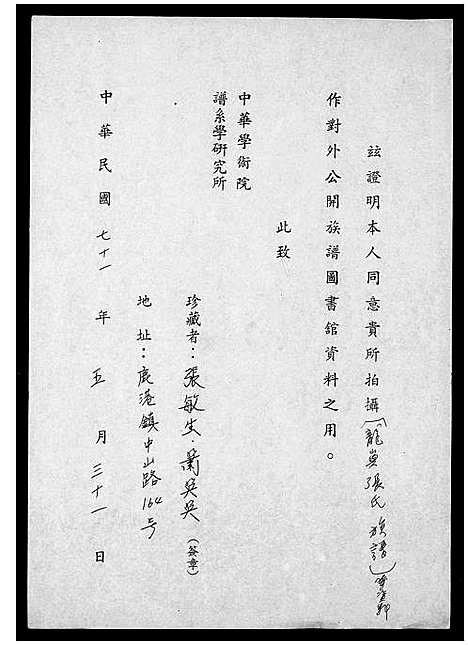 玆證明本人同意貴所拍攝(龍崗張氏族譜)
作對外公開族譜圖書舘資料之用。
此致
中華學術院
譜系學研究所
珍藏者：張敏生．(簽章)
地址：鹿港鎮中山路164号
中華民國七十一年五月三十一日